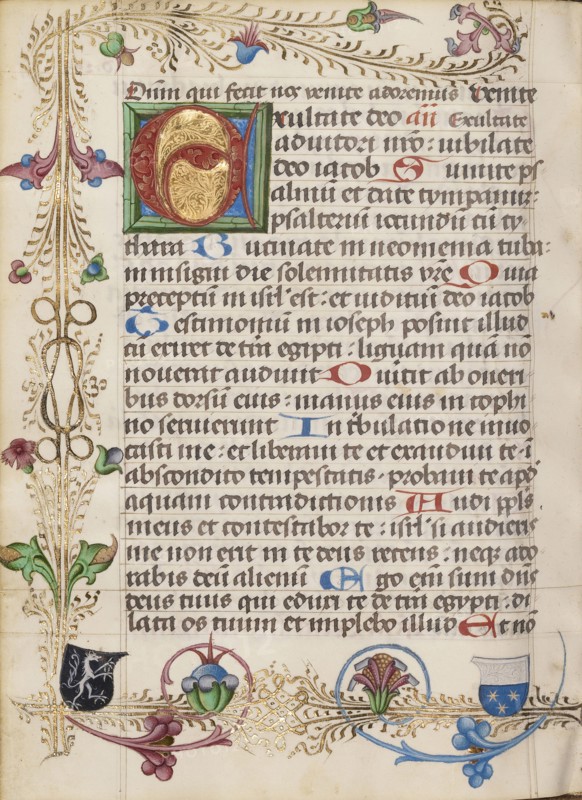 Dūm qui fecit nos venite adoremus Venite
Exultate deo añ Exultate
adiutori nro : iubilate
deo iacob Sumite ps
almū et date tympanū :
psalteriū iocundū cū cy
thara Buccinate in neomenia tuba :
in insigni die solemnitatis vre Quia
preceptū in isrl est : et iuditiū deo iacob
Testimoniū in ioseph posuit illud
cū exiret de tra egipti : liguam quā nō
noverat audivit Divertit ab oneri
bus dorsū eius : manus eius in cophi
no servierunt In tbulatione invo
casti me : et liberavi te et exaudivi te i
abscondito tempestatis : probavi te apd
aquam contradictionis Audi ppls
meus et contestabor te : isrl si audieris
me non erit in te deus recens : neqz ado
rabis deū alienū Ego eni sum dns
deus tuus qui eduxi te de tra egypti : di
lata os tuum et implebo illud Et nō